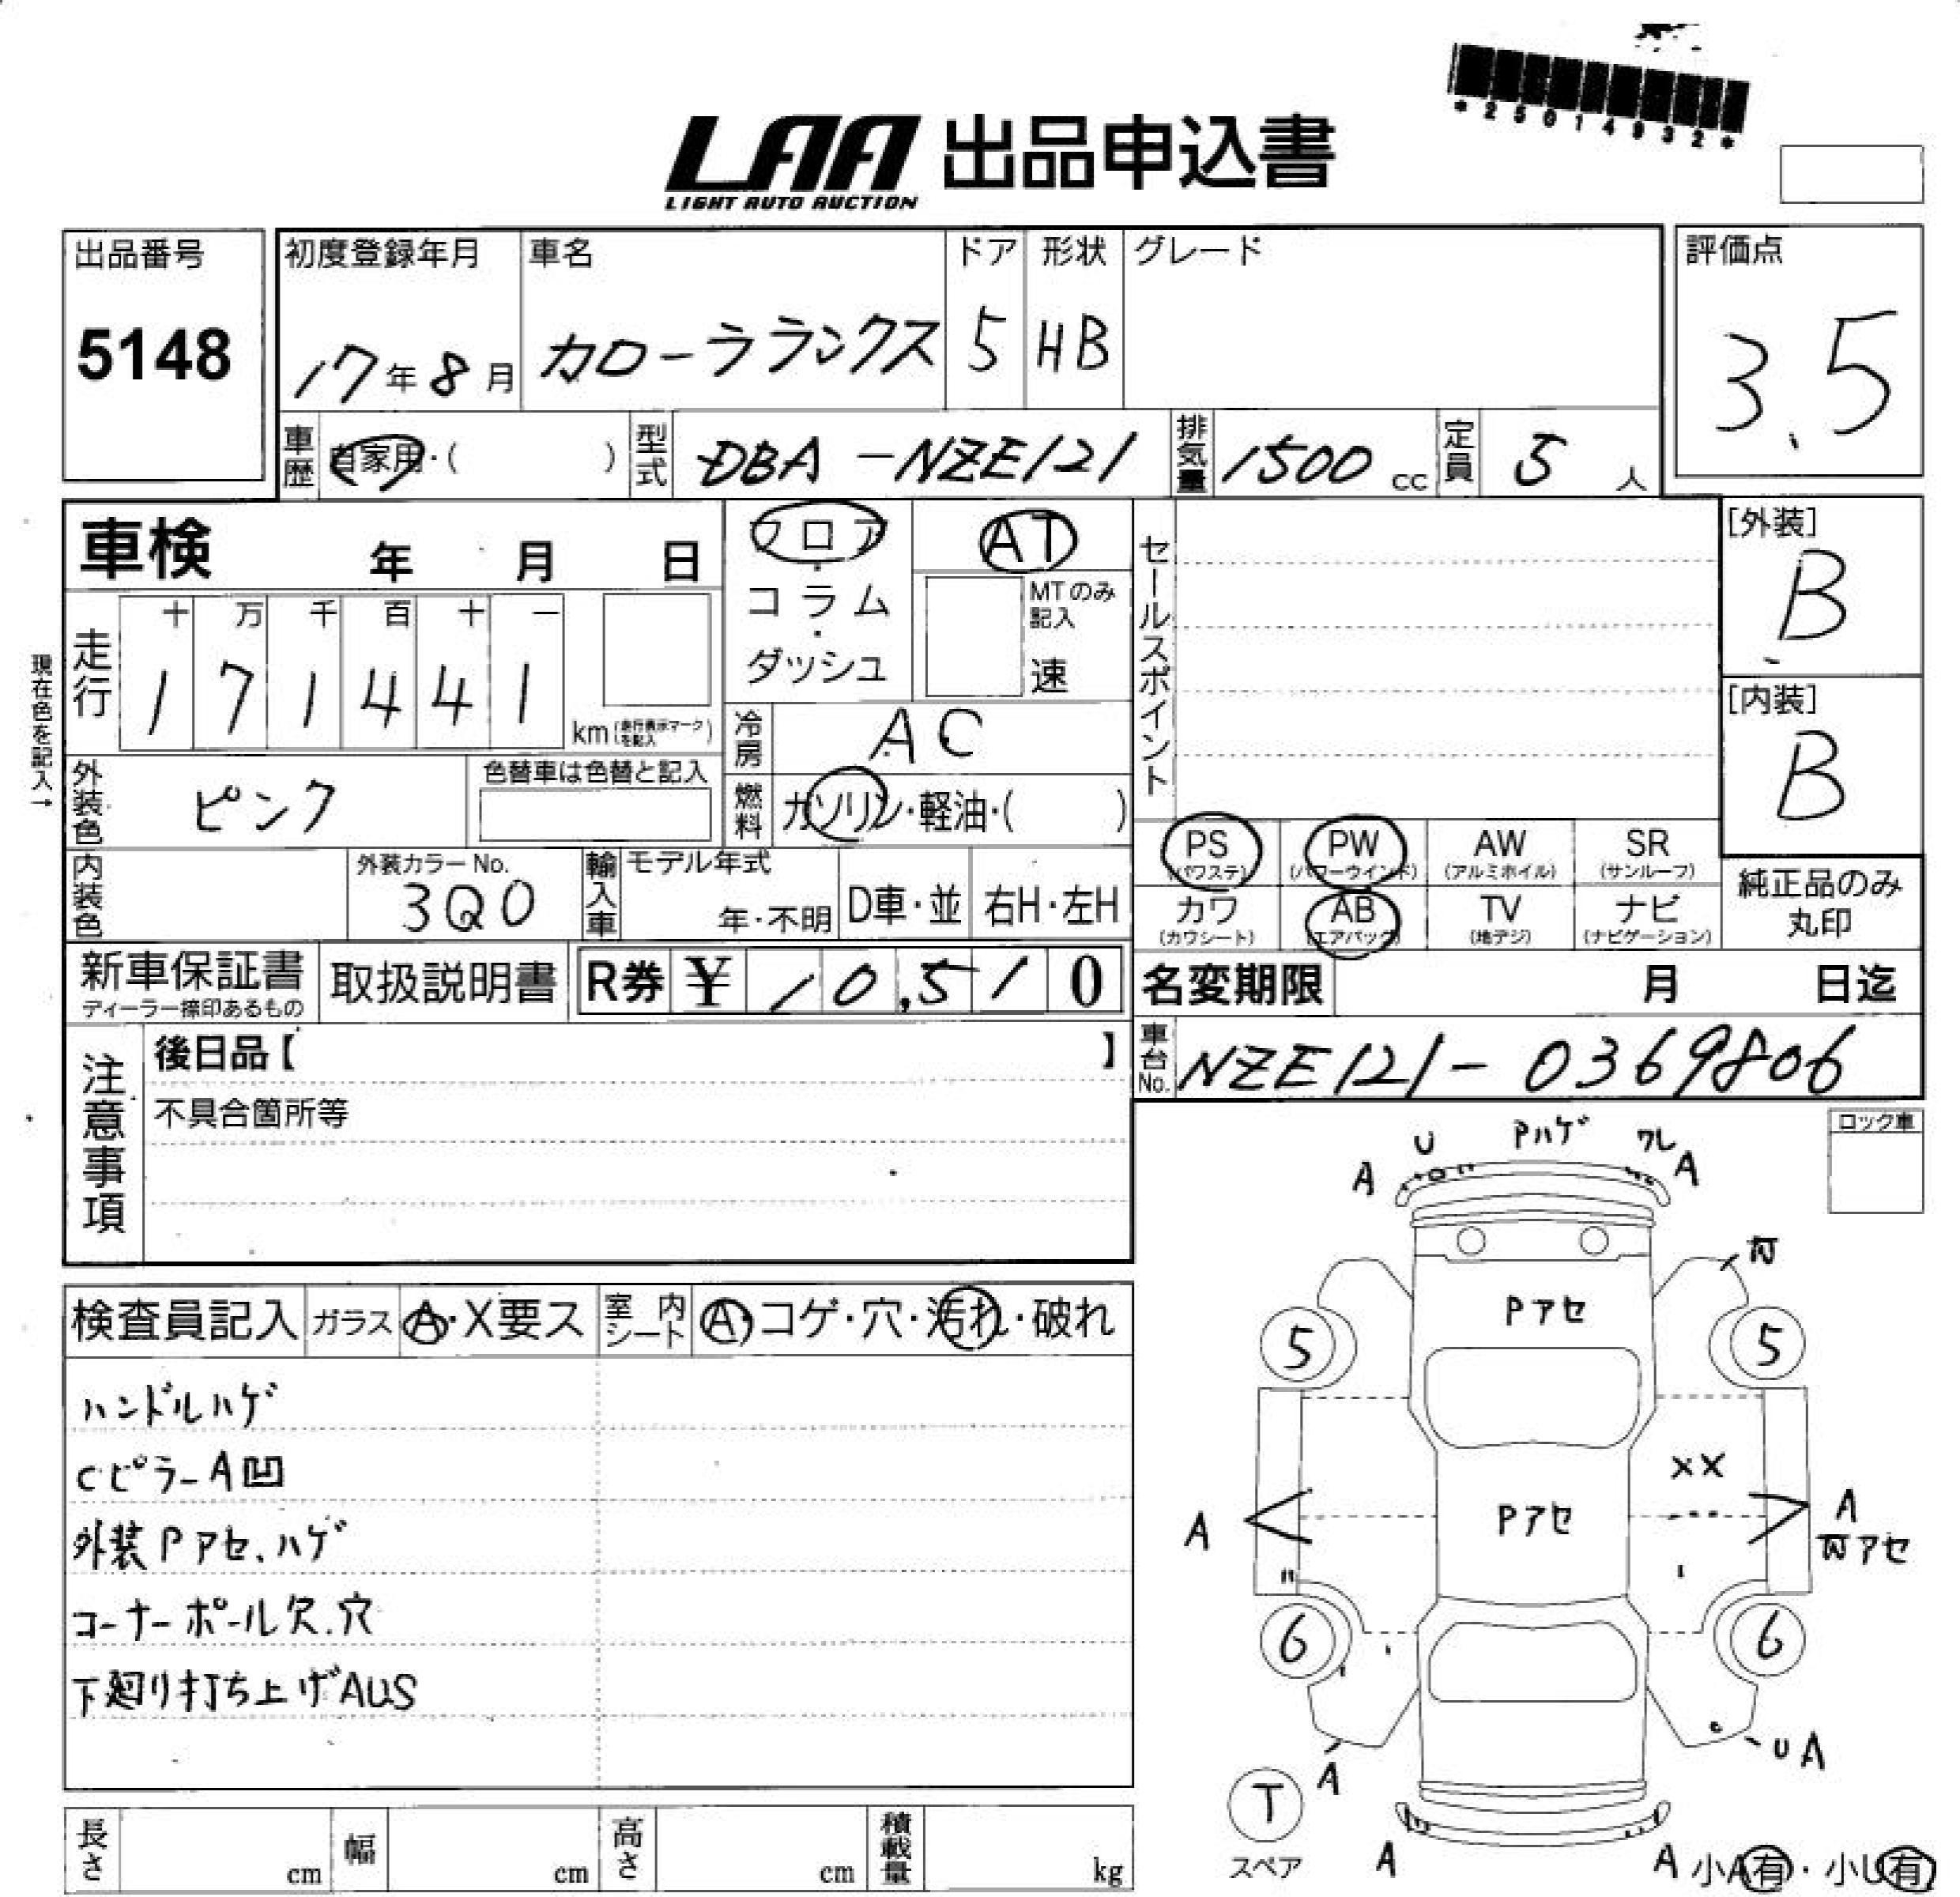 *25014932*
LAA 出品申込書
LIGHT AUTO AUCTION
出品番号
5148
初度登録年月
17年8月
車名
カローラランクス
ドア
5
形状
HB
グレード
評価点
3.5
車歴 自家用・( )
型式 DBA-NZE121
排気量 1500 cc
定員 5 人
車検 年 月 日
フロア・コラム・ダッシュ
AT
MTのみ記入
速
セールスポイント
[外装]
B
[内装]
B
現在色を記入→
走行
十 万 千 百 十 一
1 7 1 4 4 1
km (走行表示マークを記入)
冷房 AC
外装色 ピンク
色替車は色替と記入
燃料 ガソリン・軽油・( )
PS (パワステ)
PW (パワーウインド)
AW (アルミホイル)
SR (サンルーフ)
カワ (カワシート)
AB (エアバック)
TV (地デジ)
ナビ (ナビゲーション)
純正品のみ丸印
内装色
外装カラーNo.
3Q0
輸入車 モデル年式
年・不明
D車・並
右H・左H
新車保証書
ディーラー捺印あるもの
取扱説明書
R券 ¥ 10,510
名変期限 月 日迄
車台No. NZE121-0369806
注意事項
後日品【 】
不具合箇所等
ロック車
検査員記入
ガラス A・X要ス
室内シート A・コゲ・穴・汚れ・破れ
ハンドルハゲ
CピラーA凹
外装Pアセ、ハゲ
コーナーポール欠.穴
下廻り打ち上げAUS
U Pハゲ ワレ
A A
Pアセ
5 5
XX
A Pアセ A
アセ
6 6
A UA
T
スペア
A A
小A有・小U有
長さ cm
幅 cm
高さ cm
積載量 kg